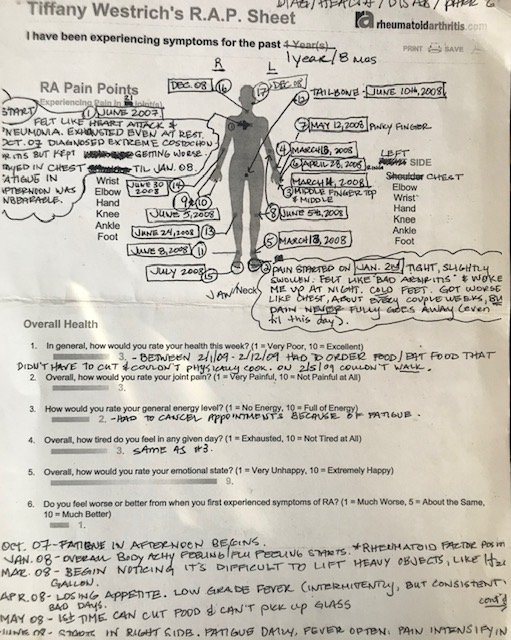 DIAG/HEALTH/DISAB/
Tiffany Westrich's R.A.P. Sheet
rheumatoidarthritis.com
I have been experiencing symptoms for the past 4 Year(s)
PRINT SAVE
1 YEAR / 8 MOS
R L
RA Pain Points
Experiencing Pain in 21 joint(s)
DEC. 08 16
17 DEC. 08
12 TAILBONE - JUNE 10th, 2008
START 1 JUNE 2007
FELT LIKE HEART ATTACK &
PNEUMONIA. EXHAUSTED EVEN AT REST.
OCT. 07 DIAGNOSED EXTREME COSTOCHON
RITIS BUT KEPT GETTING WORSE.
STAYED IN CHEST TIL JAN. 08.
FATIGUE IN
AFTERNOON WAS
UNBEARABLE.
7 MAY 12, 2008 PINKY FINGER
4 MARCH 18, 2008
6 APRIL 28, 2008 RING
MARCH 14, 2008
3 MIDDLE FINGER TOP
& MIDDLE
LEFT
SIDE
Shoulder CHEST
Elbow
Wrist
Hand
Knee
Ankle
Foot
Wrist
Elbow
Hand
Knee
Ankle
Foot
JUNE 30 2008 14
9 & 10
JUNE 5, 2008
8 JUNE 5th, 2008
JUNE 24, 2008 13
JUNE 8, 2008 11
5 MARCH 18, 2008
JULY 2008 15
JAW/Neck
2 PAIN STARTED ON JAN. 28th TIGHT, SLIGHTLY
SWOLLEN. FELT LIKE "BAD ARTHRITIS" & WOKE
ME UP AT NIGHT. COLD FEET. GOT WORSE
LIKE CHEST, ABOUT EVERY COUPLE WEEKS, BUT
PAIN NEVER FULLY GOES AWAY (EVEN
til this day).
Overall Health
1. In general, how would you rate your health this week? (1 = Very Poor, 10 = Excellent)
3. - BETWEEN 2/1/09 - 2/12/09 HAD TO ORDER FOOD/EAT FOOD THAT
DIDN'T HAVE TO CUT & COULDN'T PHYSICALLY COOK. ON 2/5/09 COULDN'T WALK.
2. Overall, how would you rate your joint pain? (1 = Very Painful, 10 = Not Painful at All)
3.
3. How would you rate your general energy level? (1 = No Energy, 10 = Full of Energy)
2. - HAD TO CANCEL APPOINTMENTS BECAUSE OF FATIGUE.
4. Overall, how tired do you feel in any given day? (1 = Exhausted, 10 = Not Tired at All)
3. SAME AS #3.
5. Overall, how would you rate your emotional state? (1 = Very Unhappy, 10 = Extremely Happy)
9.
6. Do you feel worse or better from when you first experienced symptoms of RA? (1 = Much Worse, 5 = About the Same,
10 = Much Better)
1.
OCT. 07 - FATIGUE IN AFTERNOON BEGINS.
JAN. 08 - OVERALL BODY ACHY FEELING/FLU FEELING STARTS. *RHEUMATOID FACTOR POSITI
MAR. 08 - BEGIN NOTICING IT'S DIFFICULT TO LIFT HEAVY OBJECTS, LIKE H20
GALLON.
APR. 08 - LOSING APPETITE. LOW GRADE FEVER (INTERMITENTLY, BUT CONSISTENT)
BAD DAYS. cont'd
MAY 08 - 1st TIME CAN CUT FOOD & CAN'T PICK UP GLASS
JUNE 08 - STARTS IN RIGHT SIDE. FATIGUE DAILY, FEVER OFTEN. PAIN INTENSIFY IN